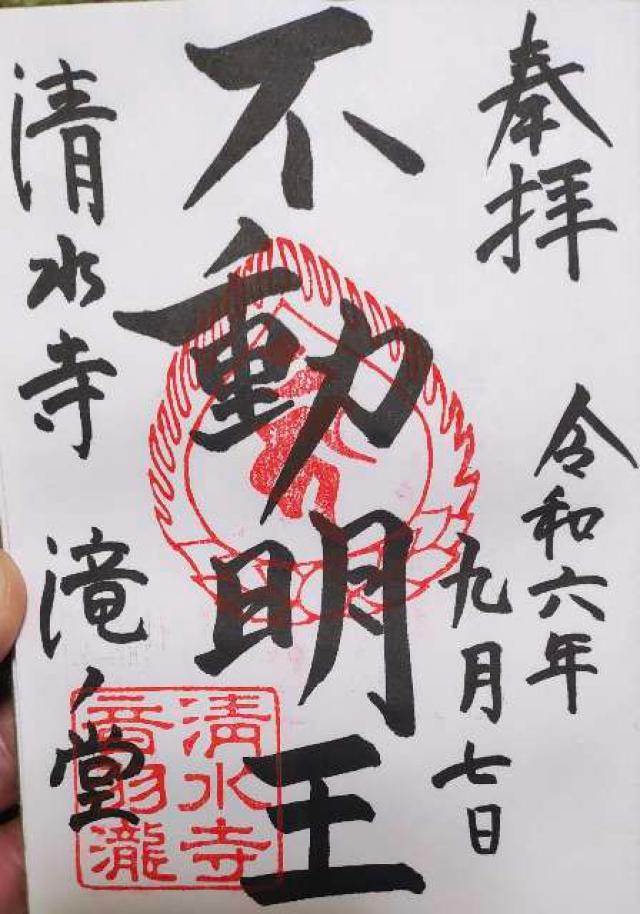 奉拝
令和六年
九月七日
不動明王
清水寺 滝ノ堂
清水寺
音羽瀧